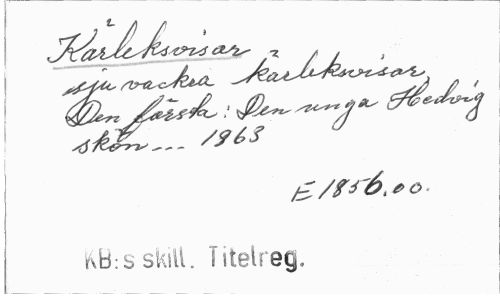 Kärleksvisor
sju vackra kärleksvisor,
Den första: Den unga Hedvig
skön --- 1863
E 1856.oo.
KB:s skill. Titelreg.